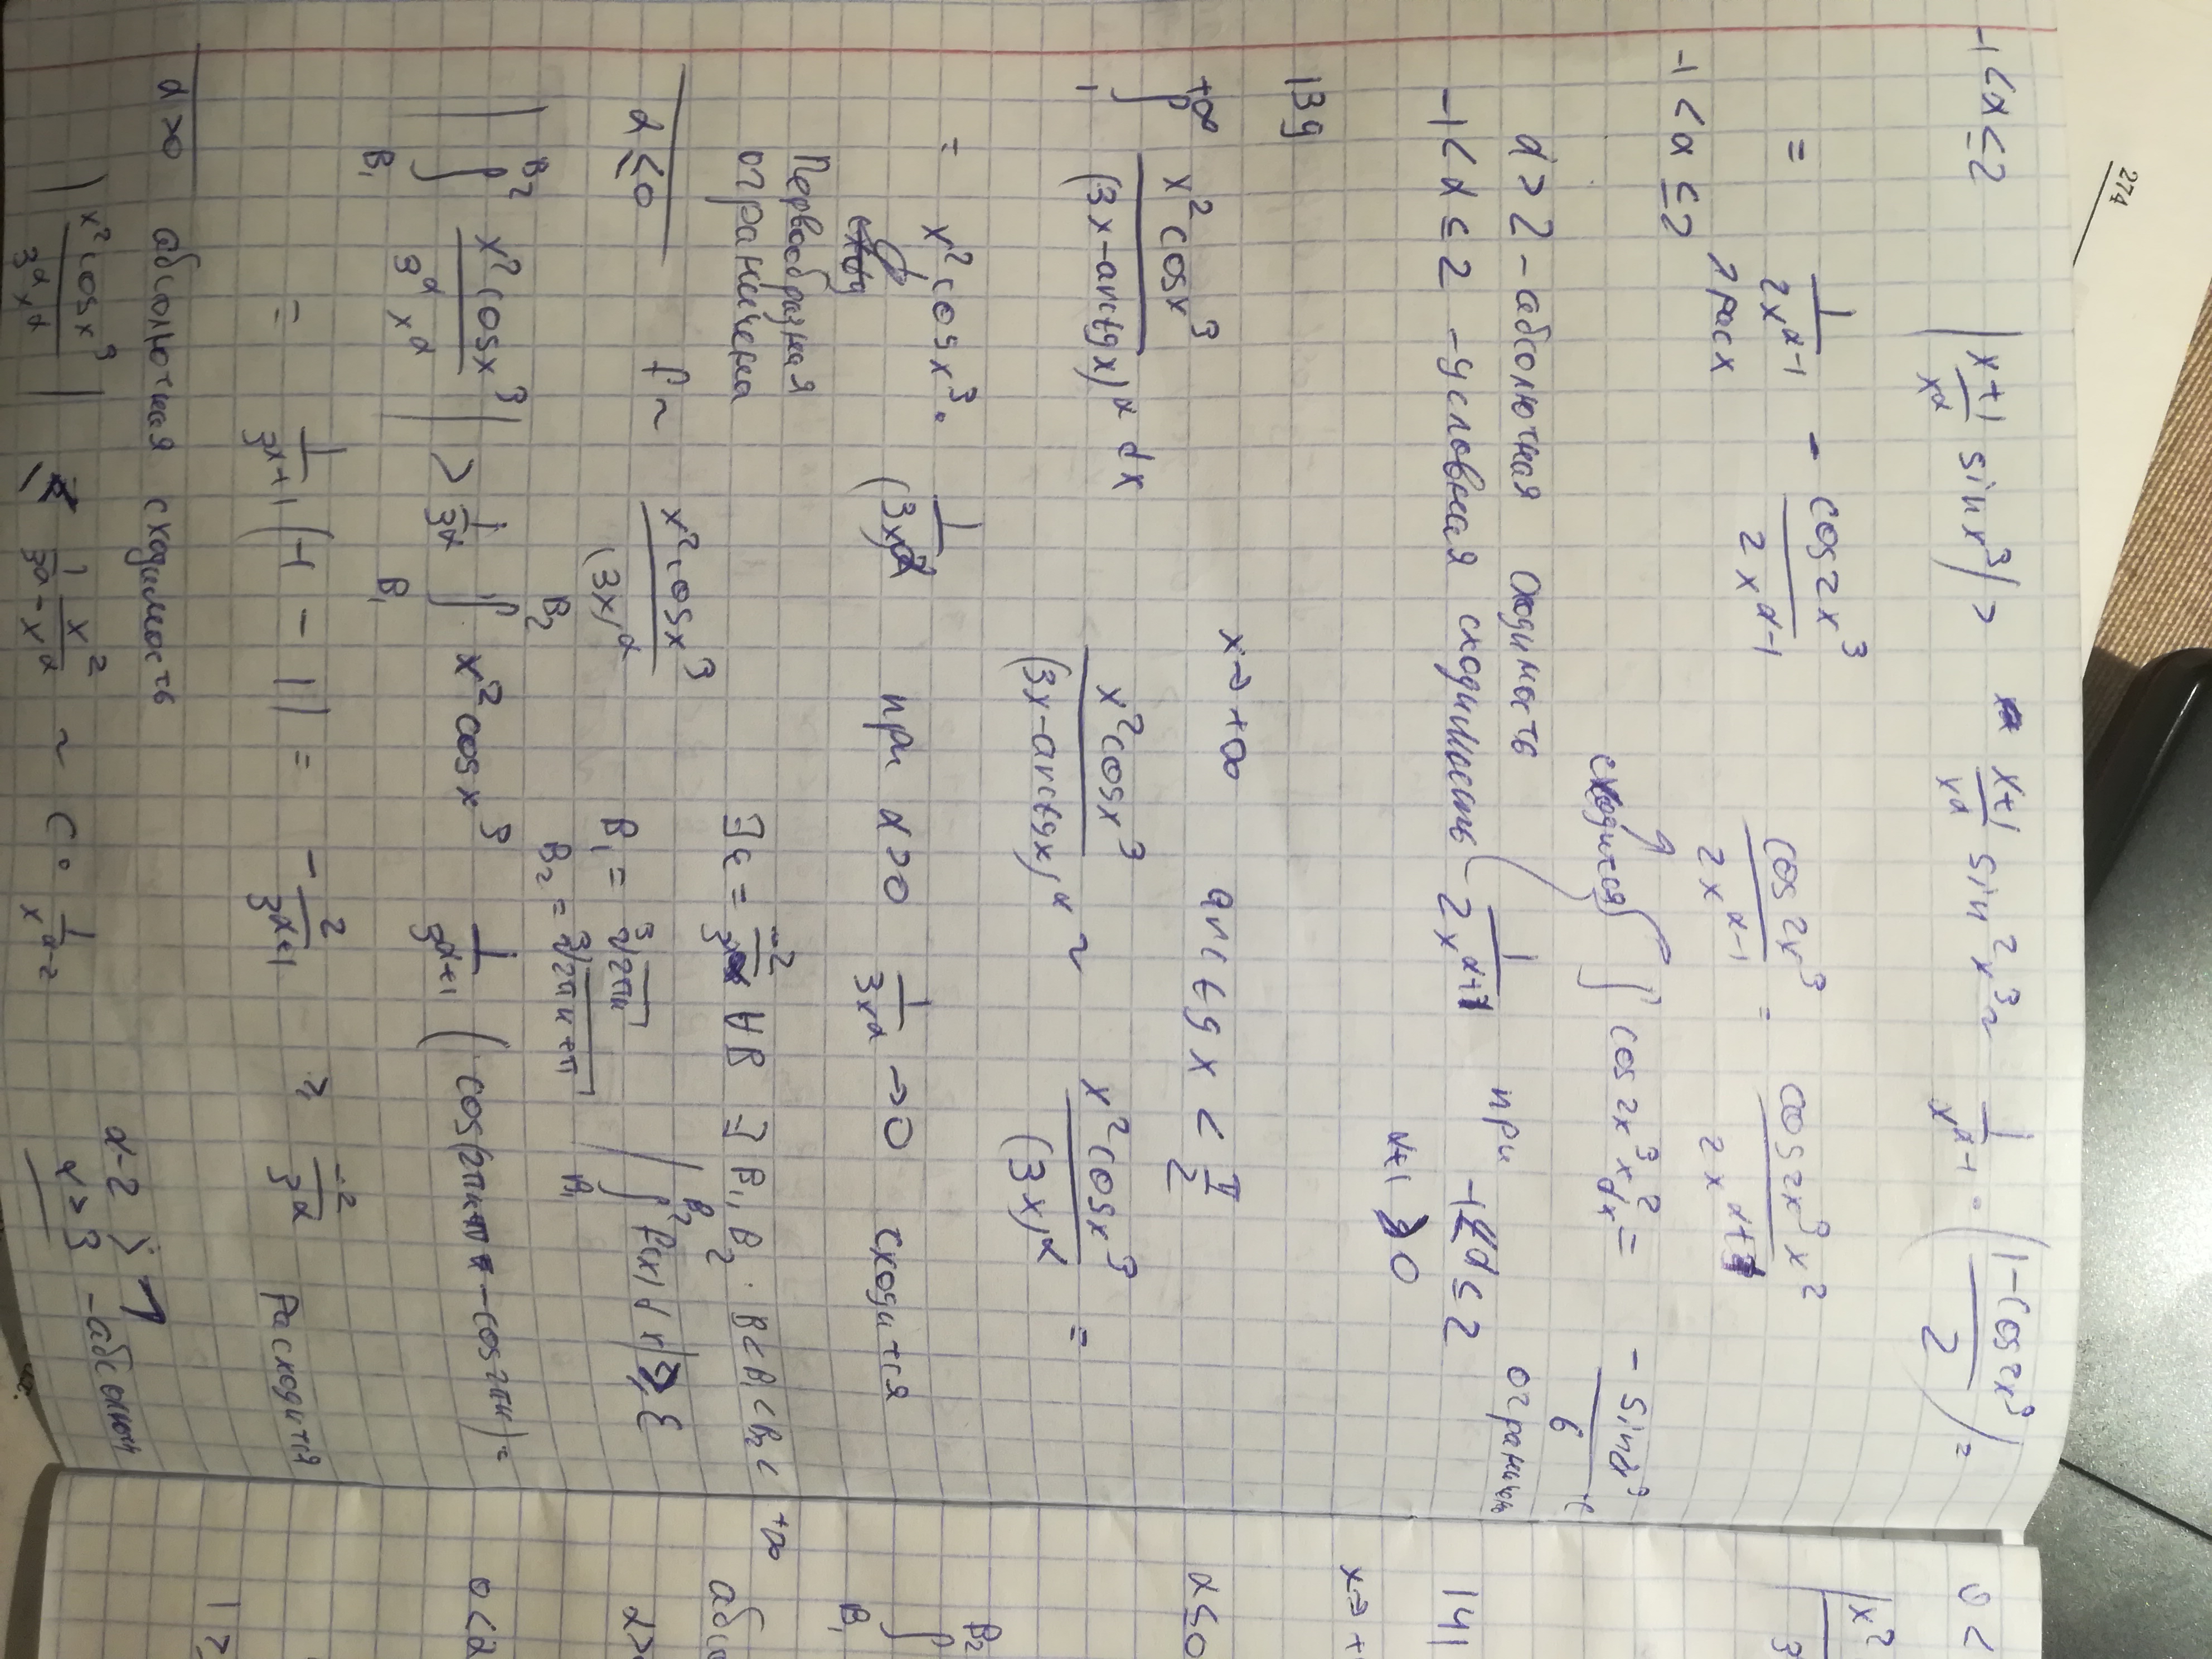 274
-1 < α ≤ 2 | (x+1)/x^α sin x³ | > (x+1)/x^α sin² x³ ~ 1/x^(α-1) · ((1-cos2x³)/2) =
= 1/(2x^(α-1)) - cos2x³/(2x^(α-1)) cos2x³/(2x^(α-1)) = cos2x³ x²/(2x^(α+1))
расх
-1 < α ≤ 2
сходится ∫ cos2x³ x² dx = - sin2x³/6 + c
ограничено
α > 2 - абсолютная сходимость
-1 < α ≤ 2 - условная сходимость 1/(2x^(α+1)) при -1 < α ≤ 2
α+1 > 0
139
+∞ ∫ 1 x² cos x³/(3x - arctg x)^α dx x → +∞ arctg x < π/2
x² cos x³/(3x - arctg x)^α ~ x² cos x³/(3x)^α =
= x² cos x³ · 1/(3x)^α при α > 0 1/3x^α → 0 сходится
Первообразная
ограничена
∃ε = -2/3^α ∀B ∃ B₁, B₂ : B < B₁ < B₂ < +∞
α ≤ 0 f ~ x² cos x³/(3x)^α B₁ = ³√2πn | B₂ ∫ B₁ f(x) dx | ≥ ε
B₂ = ³√2πn + π
| B₂ ∫ B₁ x² cos x³/(3^α x^α) | > 1/3^α B₂ ∫ B₁ x² cos x³ 1/3^(α+1) (cos(2πn+π - cos2πn) =
= 1/3^(α+1) (-1 - 1) = - 2/3^(α+1) ≥ -2/3^α расходится
α > 0 абсолютная сходимость
| x² cos x³/(3^α x^α) | ≤ 1/3^α - x²/x^α ~ C · 1/x^(α-2)
α - 2 > 1
α > 3 - абсолютн
0 <
|x²
3
141
x → +
α ≤ 0
B₂
∫
B₁
α >
0 < α
1 ≥